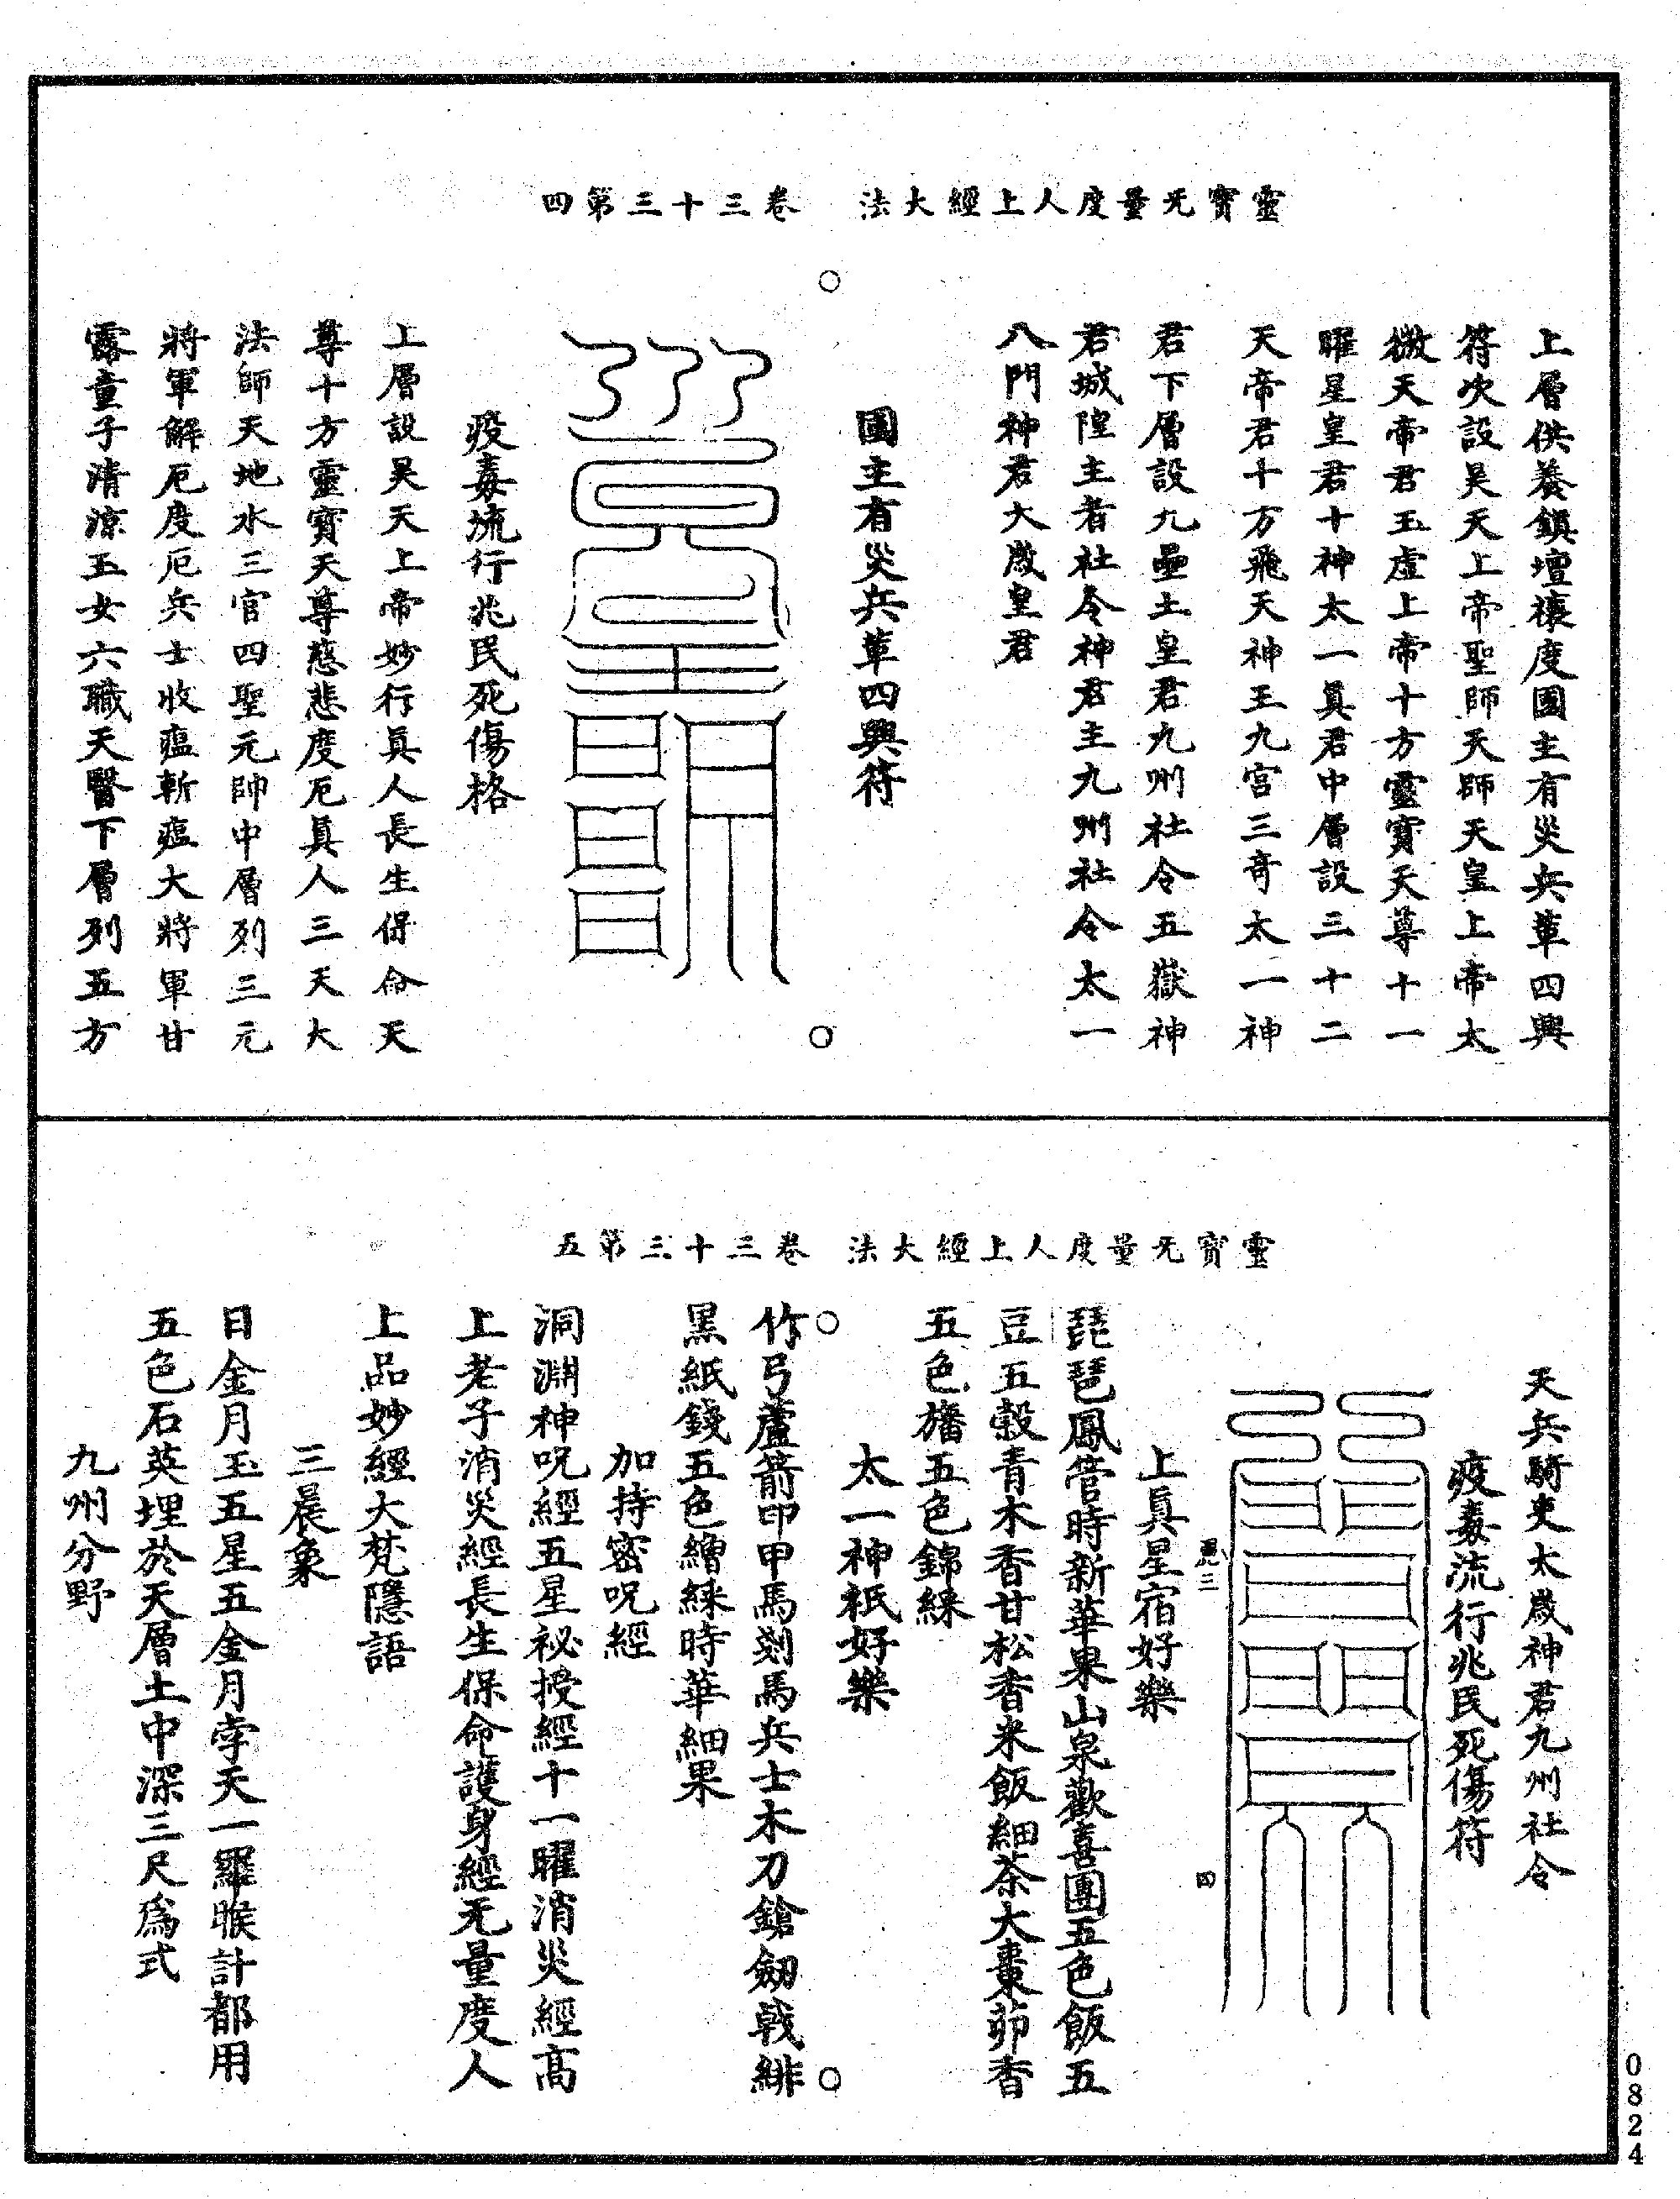 靈寶无量度人上經大法　卷三十三第四
上層供養鎮壇禳度國主有災兵革四興
符次設昊天上帝聖師天師天皇上帝太
微天帝君玉虛上帝十方靈寶天尊十一
曜星皇君十神太一真君中層設三十二
天帝君十方飛天神王九宮三奇太一神
君下層設九壘土皇君九州社令五嶽神
君城隍主者社令神君主九州社令太一
八門神君大歲皇君
國主有災兵革四興符
疫毒流行兆民死傷格
上層設昊天上帝妙行真人長生保命天
尊十方靈寶天尊慈悲度厄真人三天大
法師天地水三官四聖元帥中層列三元
將軍解厄度厄兵士收瘟斬瘟大將軍甘
露童子清涼玉女六職天醫下層列五方
靈寶无量度人上經大法　卷三十三第五
天兵騎吏太歲神君九州社令
疫毒流行兆民死傷符
四
上真星宿好樂
琵琶鳳管時新華果山泉歡喜團五色飯五
豆五穀青木香甘松香米飯細茶大棗茆香
五色旛五色錦綵
太一神祇好樂
竹弓蘆箭印甲馬剗馬兵士木刀鎗劒戟緋
黑紙錢五色繒綵時華細果
加持密呪經
洞淵神呪經五星祕授經十一曜消災經高
上老子消災經長生保命護身經无量度人
上品妙經大梵隱語
三晨象
日金月玉五星五金月孛天一羅睺計都用
五色石英埋於天層土中深三尺為式
九州分野
0824